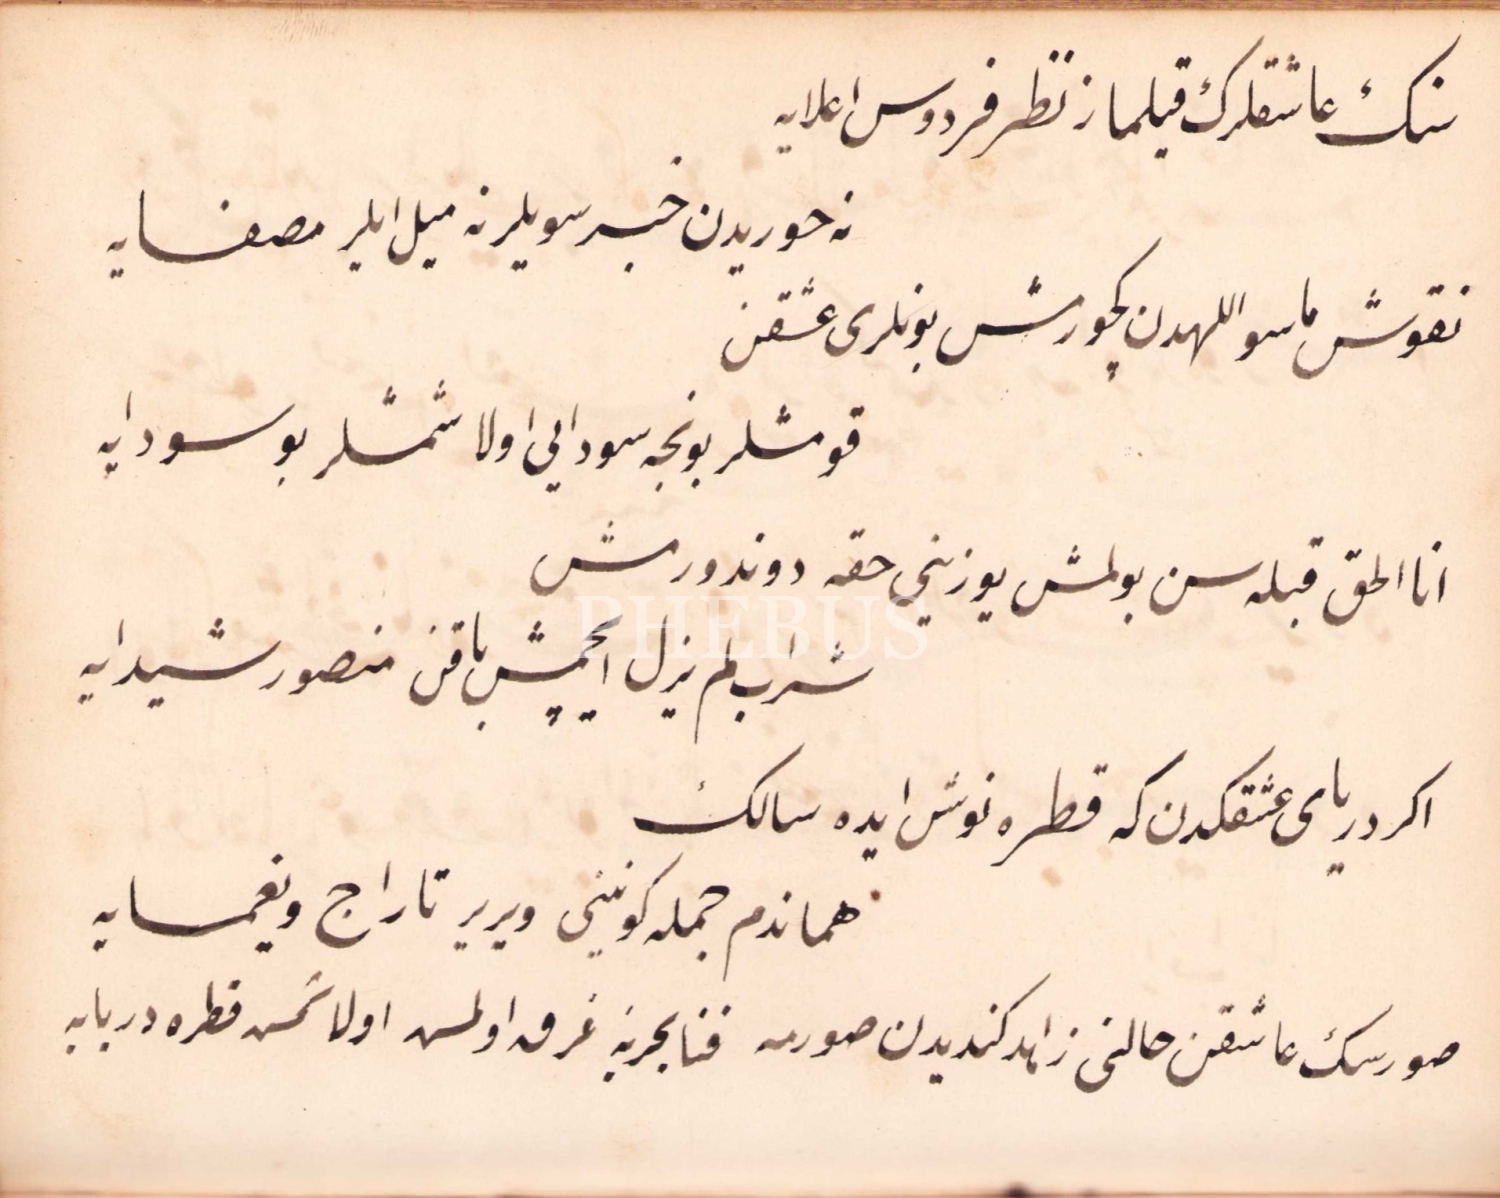 سنك عاشقلرك قيلماز نظر فردوس اعلايه
نه حوريدن خبر سويلر نه ميل ايلر مصفايه
نقوش ماسو اللهدن كچورمش بونلرى عشقن
قومشلر بونجه سودايي اولاشمشلر بو سودايه
انا الحق قبله سن بولمش يوزيني حقه دوندورمش
شراب لم يزل ايچمش باقن منصور شيدايه
PHEBUS
اكر درياى عشقكدن كه قطره نوش ايده سالك
هماندم جمله كونيني ويرير تاراج ويغمايه
صورسك عاشقن حالنى زاهد كنديدن صورمه فنا بحرينه غرق اولمس اولاشمس قطره دريايه